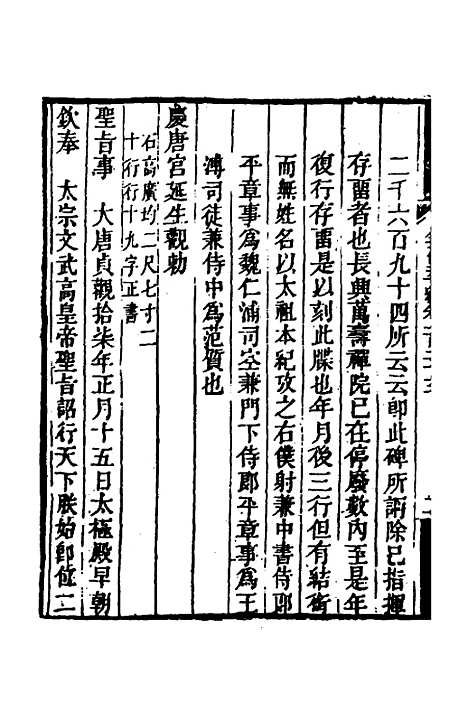 二千六百九十四所云云卽此碑所謂除已指揮
存留者也長興萬壽禪院已在停廢數內至是年
復行存留是以刻此牒也年月後三行但有結銜
而無姓名以太祖本紀攷之右僕射兼中書侍郎
平章事爲魏仁浦司空兼門下侍郎平章事爲王
溥司徒兼侍中爲范質也
慶唐宮延生觀勅
石高廣均二尺七寸二
十行行十九字正書
聖旨事　大唐貞觀拾柒年正月十五日太極殿早朝
欽奉　太宗文武高皇帝聖旨詔行天下朕始卽位二